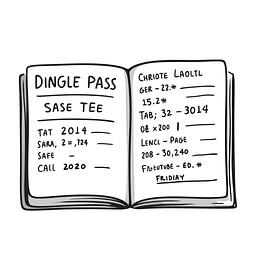 DINGLE PASS
SASE TEE
TAT 2014
SARA, 2 = ,724
SAFE –
CALL 2020
CHRIOTE LAOLTL
GER – 22.*
15.2*
TAB; 32 – 3014
x200 |
LENCL – PAGE
208 – 30,240
– ED. *
FRIDIAY